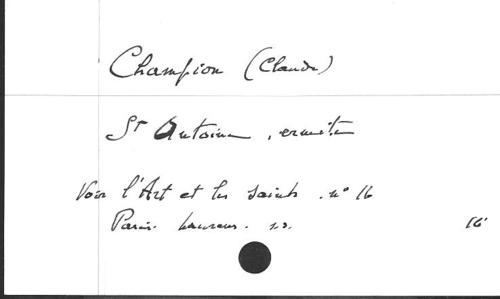 Champion (Claude)
St Antoine, ermite
Voir l'Art et les saints. n° 16
Paris. Laurens. s.d.
16°